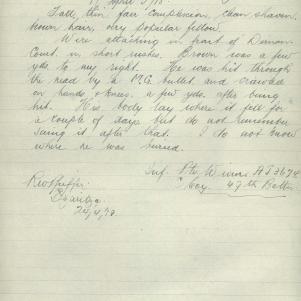 April 5/18
Tall, thin fair complexion, clean shaven
brown hair, very popular fellow.
Were attacking in front of
Court in short rushes. Brown was a few
yds. to my right. He was hit through
the head by a M.G. bullet and crawled
on hands & knees a few yds. after being
hit. His body lay where it fell for
a couple of days but do not remember
seeing it after that. I do not know
where he was buried.
Inf. Pte W 3674
Coy. 49th Battn
24/4/18